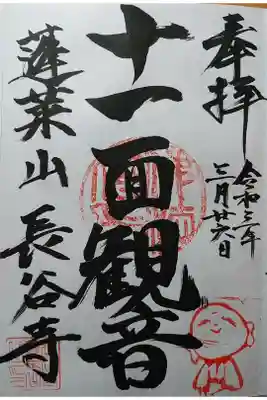 奉拝
令和三年
三月廿六日
十一面観音
蓬莱山 長谷寺